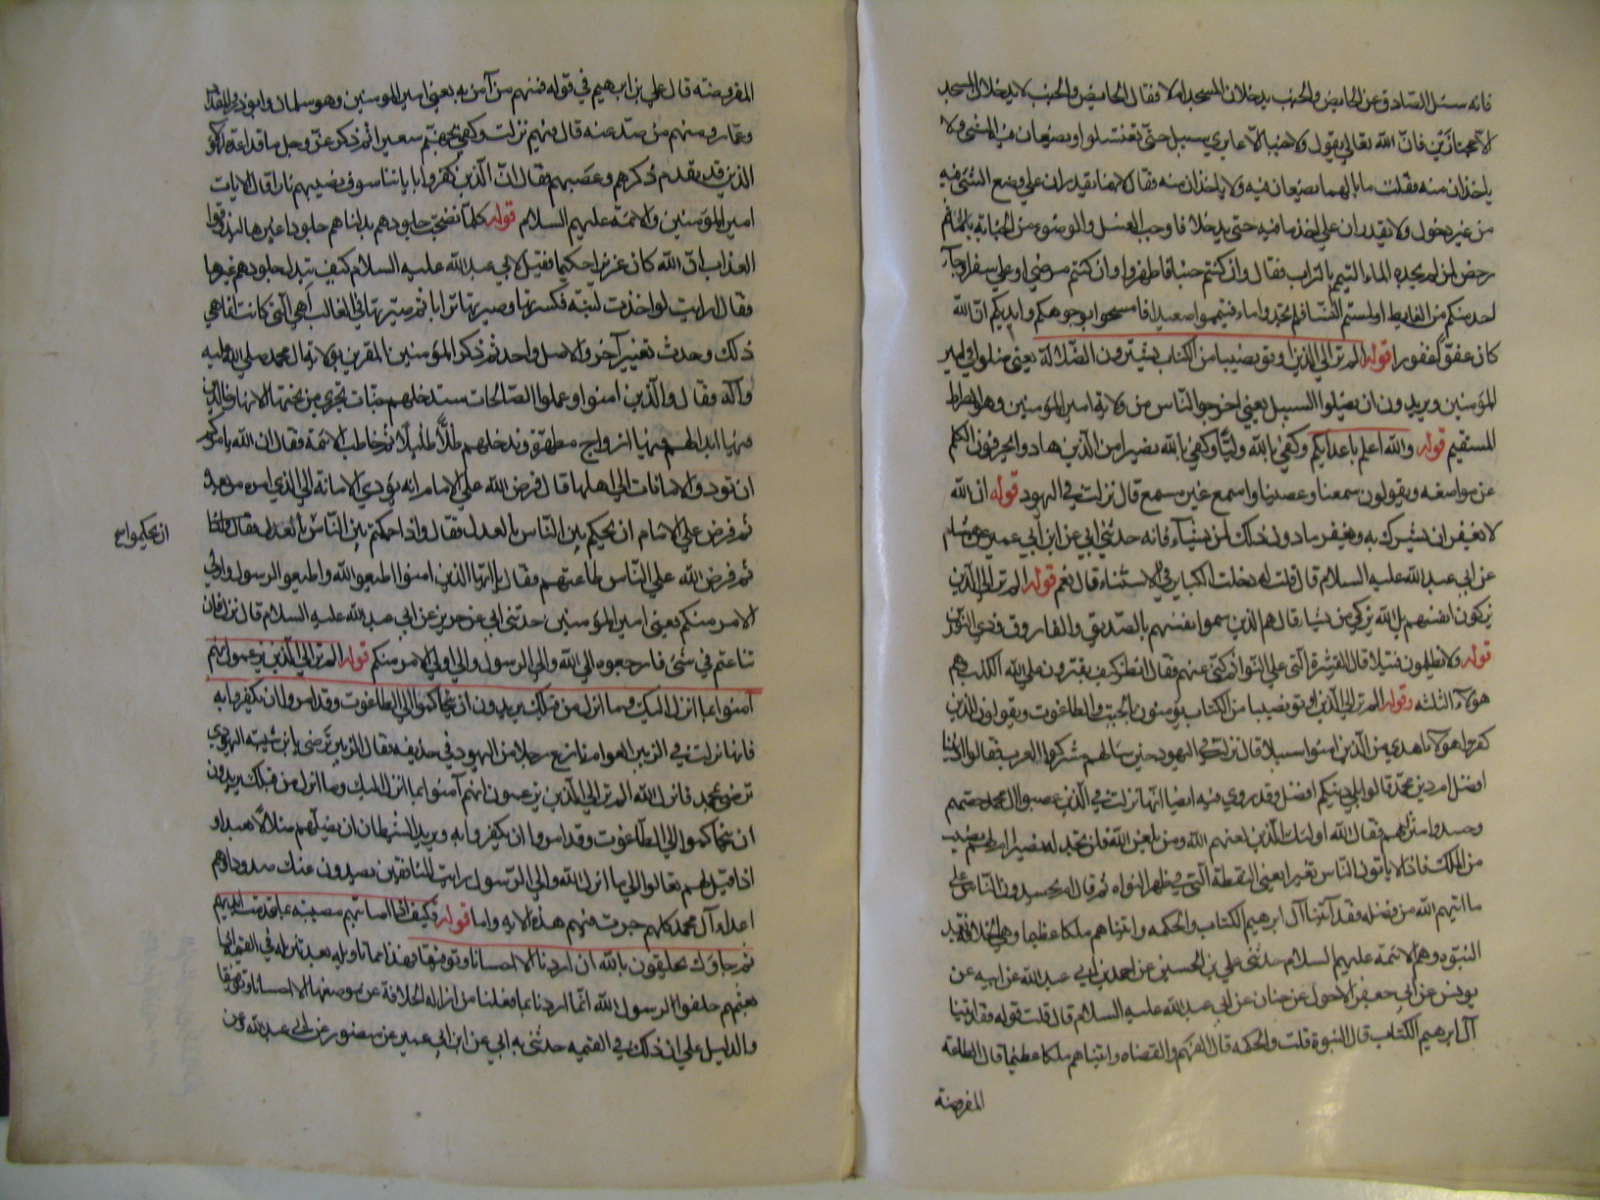 فانه سئل الصادق عن الحايض والجنب يدخلان المسجد ام لا فقال الحايض والجنب لا يدخلان المسجد
الا مجتازين فان الله تعالى يقول ولا جنبا الا عابري سبيل حتى تغتسلوا ويضعان فيه الشئ ولا
ياخذان منه فقلت ما بالهما يضعان فيه ولا ياخذان منه فقال لانهما يقدران على وضع الشئ فيه
من غير دخول ولا يقدران على اخذ ما فيه حتى يدخلا فاوجب الغسل والوضوء من الجنابة بالماء ثم
رخص لمن لم يجد الماء التيمم بالتراب فقال وان كنتم جنبا فاطهروا وان كنتم مرضى او على سفر او جاء
احد منكم من الغايط او لمستم النسا فلم تجدوا ماء فتيمموا صعيدا فامسحوا بوجوهكم وايديكم ان الله
كان عفوا غفورا قوله الم تر الى الذين اوتو نصيبا من الكتاب يشترون الضلالة يعني ضلوا في امير
المؤمنين ويريدون ان تضلوا السبيل يعني اخرجوا الناس من ولاية امير المؤمنين وهو الصراط
المستقيم قوله والله اعلم باعدائكم وكفى بالله وليا وكفى بالله نصيرا من الذين هادوا يحرفون الكلم
عن مواضعه ويقولون سمعنا وعصينا واسمع غير مسمع قال نزلت في اليهود قوله ان الله
لا يغفر ان يشرك به ويغفر ما دون ذلك لمن يشاء فانه حدثني ابي عن ابن ابي عمير عن هشام
عن ابي عبد الله عليه السلام قال قلت له دخلت الكباير في الاستثناء قال نعم قوله الم تر الى الذين
يزكون انفسهم بل الله يزكي من يشا قال هم الذين سموا انفسهم بالصديق والفاروق وذي النورين
قوله ولا تظلمون فتيلا قال القشرة التي على النواة ثم كنى عنهم فقال انظر كيف يفترون على الله الكذب هم
هؤلاء الثلثه وقوله الم تر الى الذين اوتو نصيبا من الكتاب يؤمنون بالجبت والطاغوت ويقولون للذين
كفروا هولاء اهدى من الذين امنوا سبيلا قال نزلت في اليهود حين سالهم مشركوا العرب فقالوا اديننا
افضل ام دين محمد قالوا بلى دينكم افضل وقد روي فيه ايضا انها نزلت في الذين غصبوا آل محمد حقهم
وحسدوا منزلتهم فقال الله اولئك الذين لعنهم الله ومن يلعن الله فلن تجد له نصيرا ام لهم نصيب
من الملك فاذا لا ياتون الناس نقيرا يعني النقطة التي في ظهر النواه ثم قال ام يحسدون الناس على
ما اتيهم الله من فضله فقد آتينا آل ابرهيم الكتاب والحكمه واتيناهم ملكا عظيما وهي الخلافة بعد
النبوة وهم الائمة عليهم السلام حدثني علي بن الحسين عن احمد بن ابي عبد الله عن ابيه عن
يونس عن ابي جعفر الاحول عن حنان عن ابي عبد الله عليه السلام قال قلت قوله فقد اتينا
آل ابرهيم الكتاب قال النبوة قلت والحكمه قال الفهم والقضاء واتيناهم ملكا عظيما قال الطاعة
المفروضة
المفروضة قال علي بن ابرهيم في قوله فمنهم من آمن به يعني امير المومنين وهو سلمان وابو ذر والمقداد
وعمار ومنهم من صد عنه قال فيهم نزلت وكفى بجهنم سعيرا ثم ذكر عز وجل ما قد اعده لهولاء
الذين قد تقدم ذكرهم وغصبهم فقال ان الذين كفروا باياتنا سوف نصليهم نارا قال الايات
امير المؤمنين والائمة عليهم السلام قوله كلما نضجت جلودهم بدلناهم جلودا غيرها ليذوقوا
العذاب ان الله كان عزيزا حكيما فقيل لابي عبد الله عليه السلام كيف تبدل جلودهم غيرها
فقال ارايت لو اخذت لبنة فكسرتها وصيرتها ترابا ثم صيرتها في القالب اهي التي كانت انما هي
ذلك وحدث تغيير آخر والاصل واحد ثم ذكر المؤمنين المقرين بولاية ال محمد صلى الله عليه
وآله فقال والذين امنوا وعملوا الصالحات سندخلهم جنات تجري من تحتها الانهار خالدين
فيها ابدا لهم فيها ازواج مطهرة وندخلهم ظلا ظليلا ثم خاطب الائمة فقال ان الله يامركم
ان تودوا الامانات الى اهلها قال فرض الله على الامام انه يؤدي الامانة الى الذي امره من بعده
ثم فرض على الامام ان يحكم بين الناس بالعدل فقال واذا حكمتم بين الناس
ان تحكموا
ثم فرض الله على الناس طاعتهم فقال يا ايها الذين امنوا اطيعوا الله واطيعوا الرسول واولي
الامر منكم يعني امير المؤمنين حدثني ابي عن حريز عن ابي عبد الله عليه السلام قال نزل فان
تنازعتم في شئ فارجعوه الى الله والى الرسول والى اولي الامر منكم قوله الم تر الى الذين يزعمون انهم
آمنوا بما انزل اليك وما انزل من قبلك يريدون ان يتحاكموا الى الطاغوت وقد امروا ان يكفروا به
فانها نزلت في الزبير بن العوام نازع رجلا من اليهود في حديقه فقال الزبير نرضى بابن شيبه اليهودي
ترضى بمحمد فانزل الله الم تر الى الذين يزعمون انهم آمنوا بما انزل اليك وما انزل من قبلك يريدون
ان يتحاكموا الى الطاغوت وقد امروا ان يكفروا به ويريد الشيطان ان يضلهم ضلالا بعيدا و
اذا قيل لهم تعالوا الى ما انزل الله والى الرسول رايت المنافقين يصدون عنك صدودا وهم
اعداء آل محمد كلهم جرت فيهم هذه الايه واما قوله فكيف اذا اصابتهم مصيبة بما قدمت ايديهم
ثم جاؤك يحلفون بالله ان اردنا الا احسانا وتوفيقا فهذا مما تاويله بعد تنزيله في القيمة اذا
بعثهم حلفوا لرسول الله انما اردنا بما فعلنا من ازالة الخلافة عن موضعها الا احسانا وتوفيقا
والدليل على ان ذلك في القيمه حدثني به ابي عن ابن ابي عمير عن منصور عن ابي عبد الله وعن